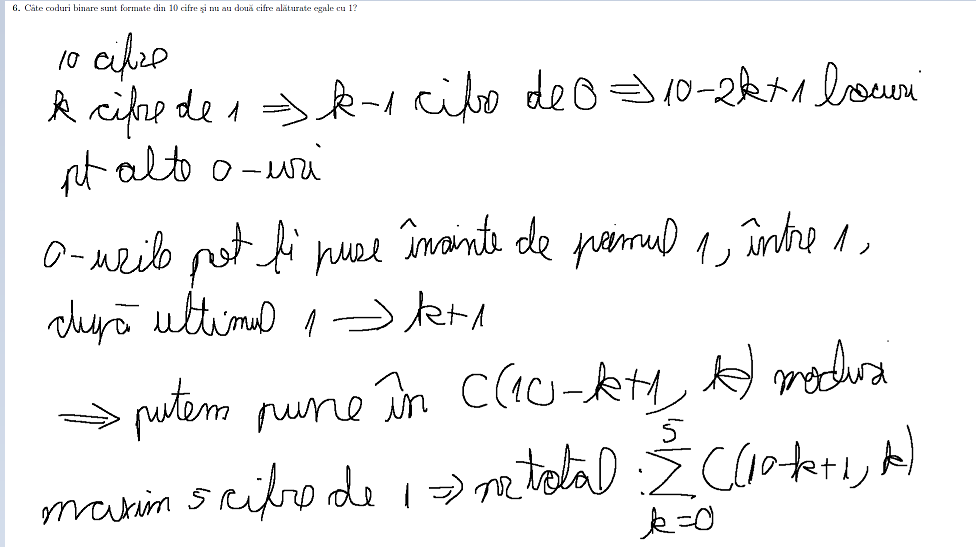 6. Câte coduri binare sunt formate din 10 cifre și nu au două cifre alăturate egale cu 1?
10 cifre
k cifre de 1 ⇒ k-1 cifre de 0 ⇒ 10-2k+1 locuri
pt alte 0-uri
0-urile pot fi puse înainte de primul 1, între 1,
după ultimul 1 ⇒ k+1
⇒ putem pune în C(10-k+1, k) moduri
maxim 5 cifre de 1 ⇒ nr total: \sum_{k=0}^{5} C(10-k+1, k)